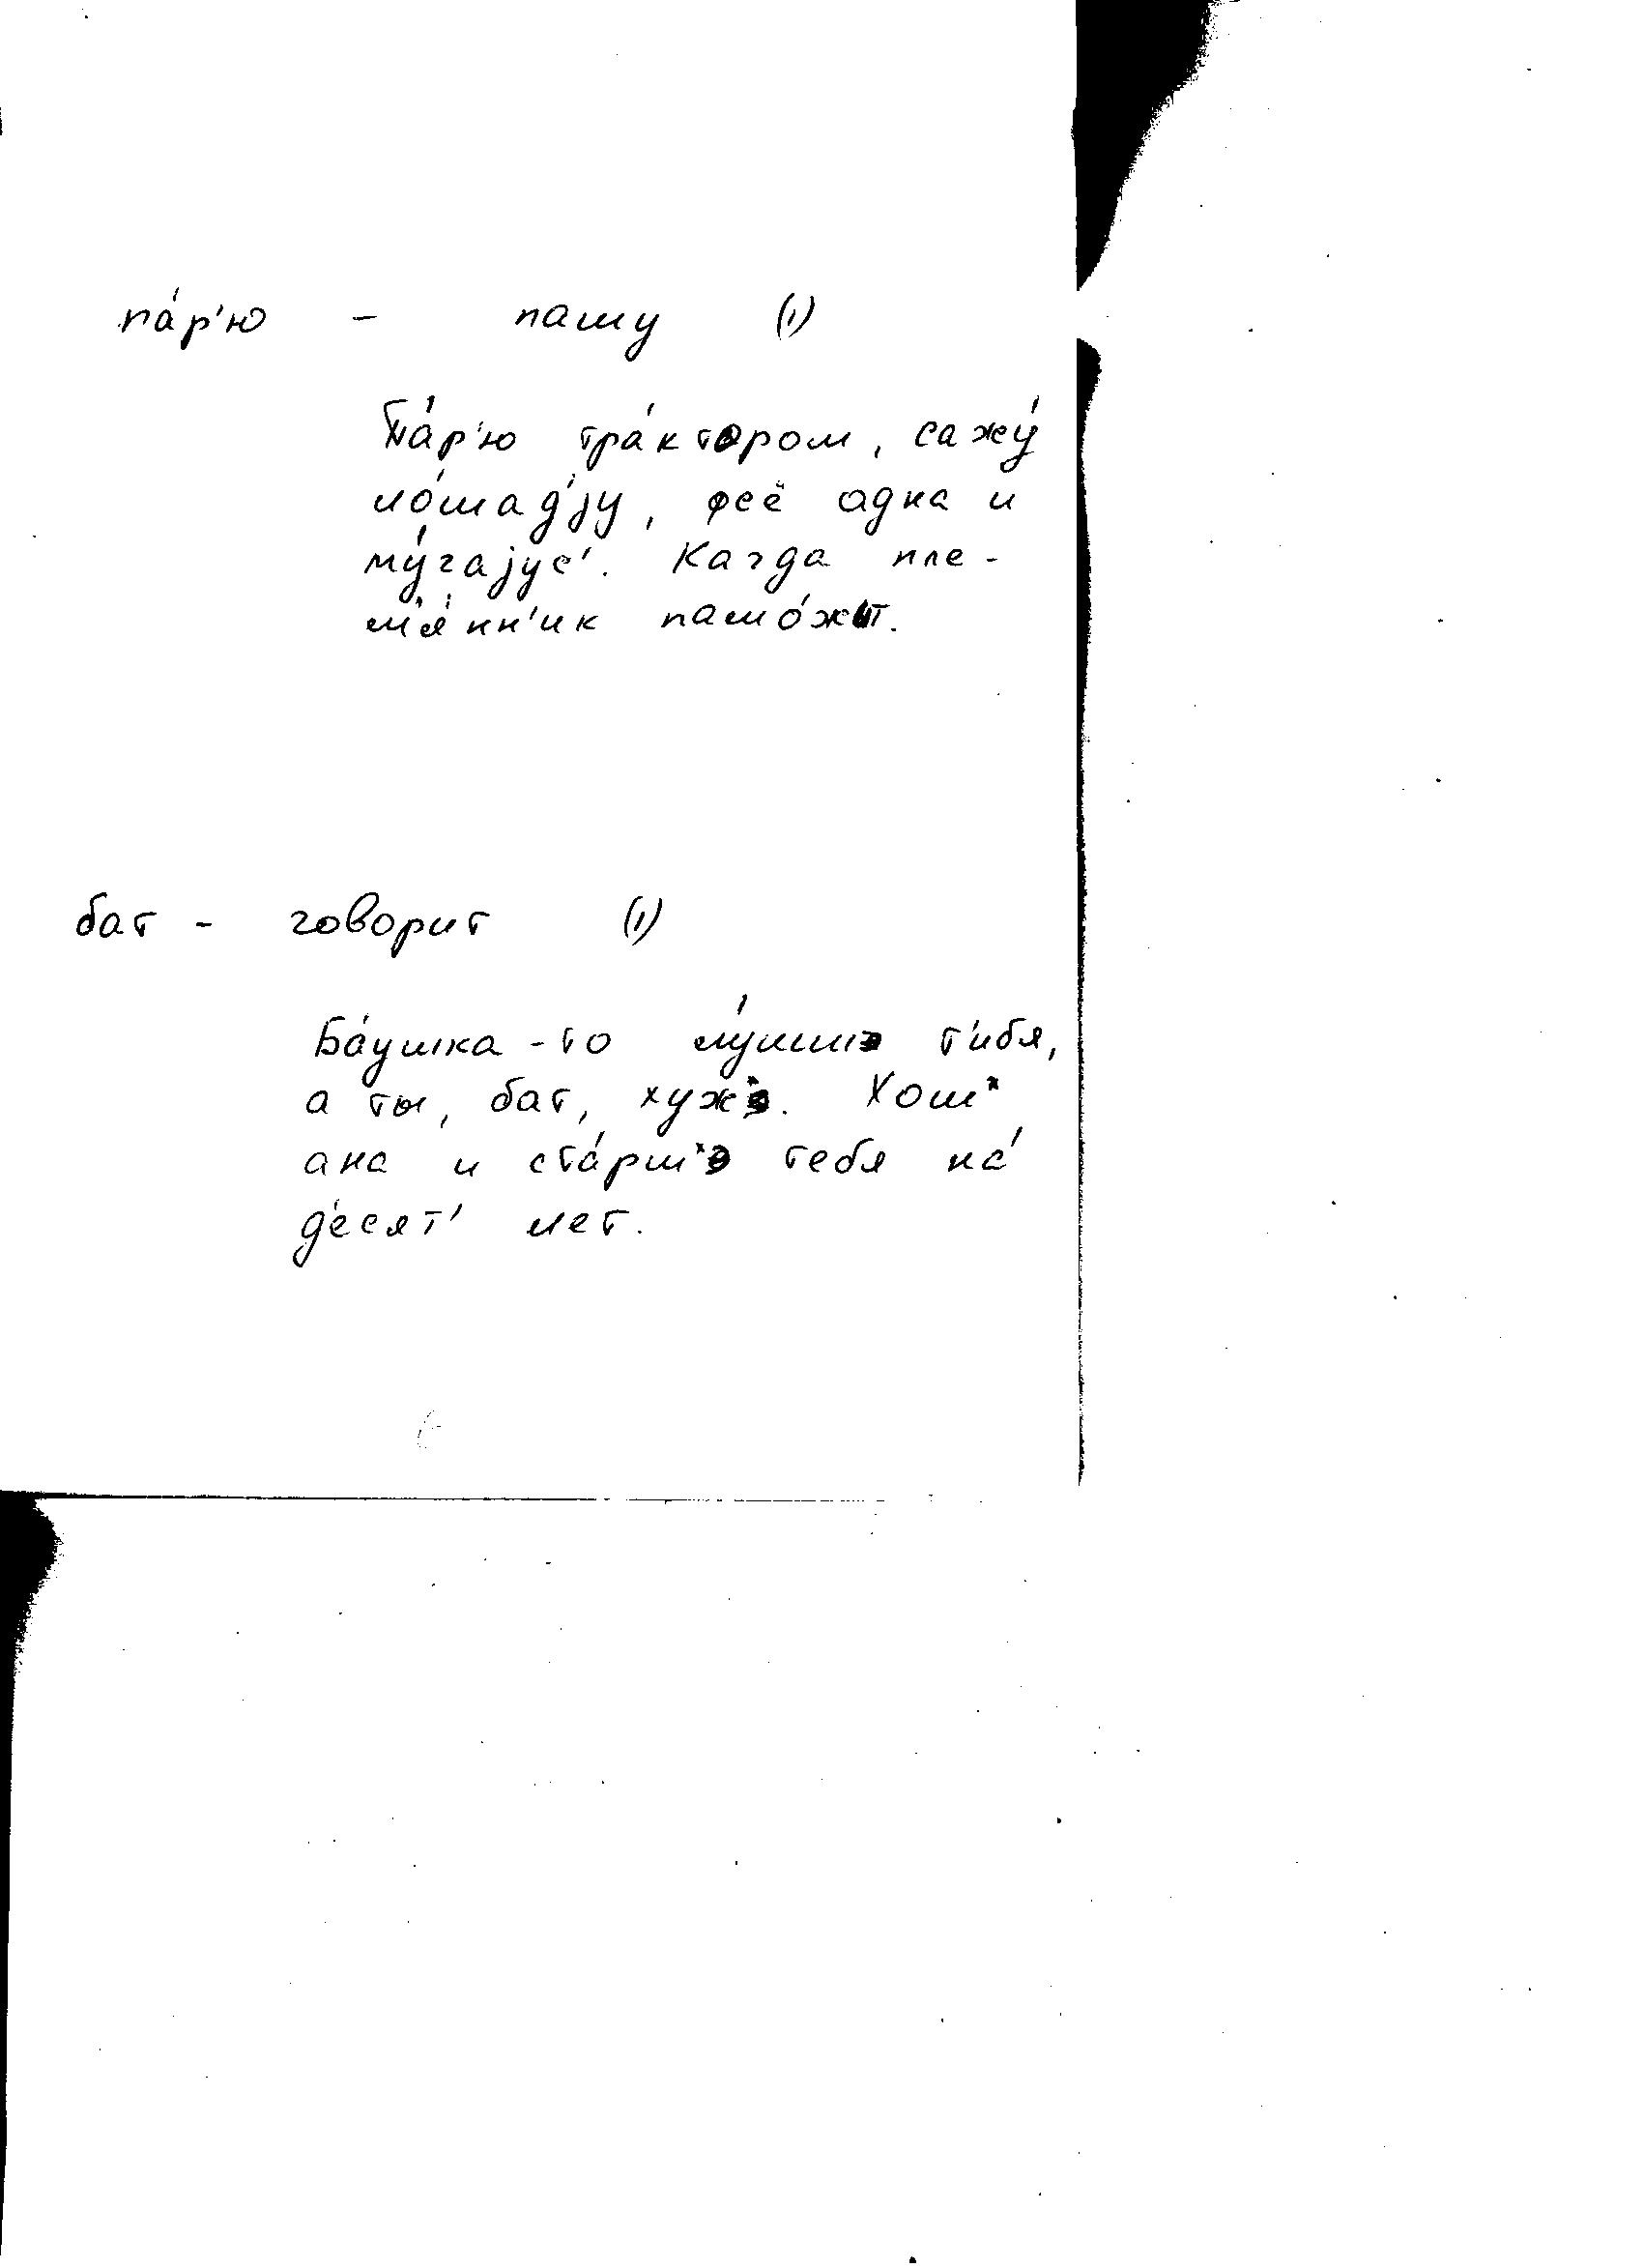 па́р'ю - пашу (1)
Па́р'ю тра́ктором, сажу́
ло́шад'jу, фсё одна и
му́чаjус'. Кагда пле-
м'я́нн'ик памо́жыт.
бат - говорит (1)
Ба́ушка-то лу́чшэ т'ибя,
а ты, бат, хужэ. Хош
ана и ста́ршэ тебя на́
д'есят' лет.